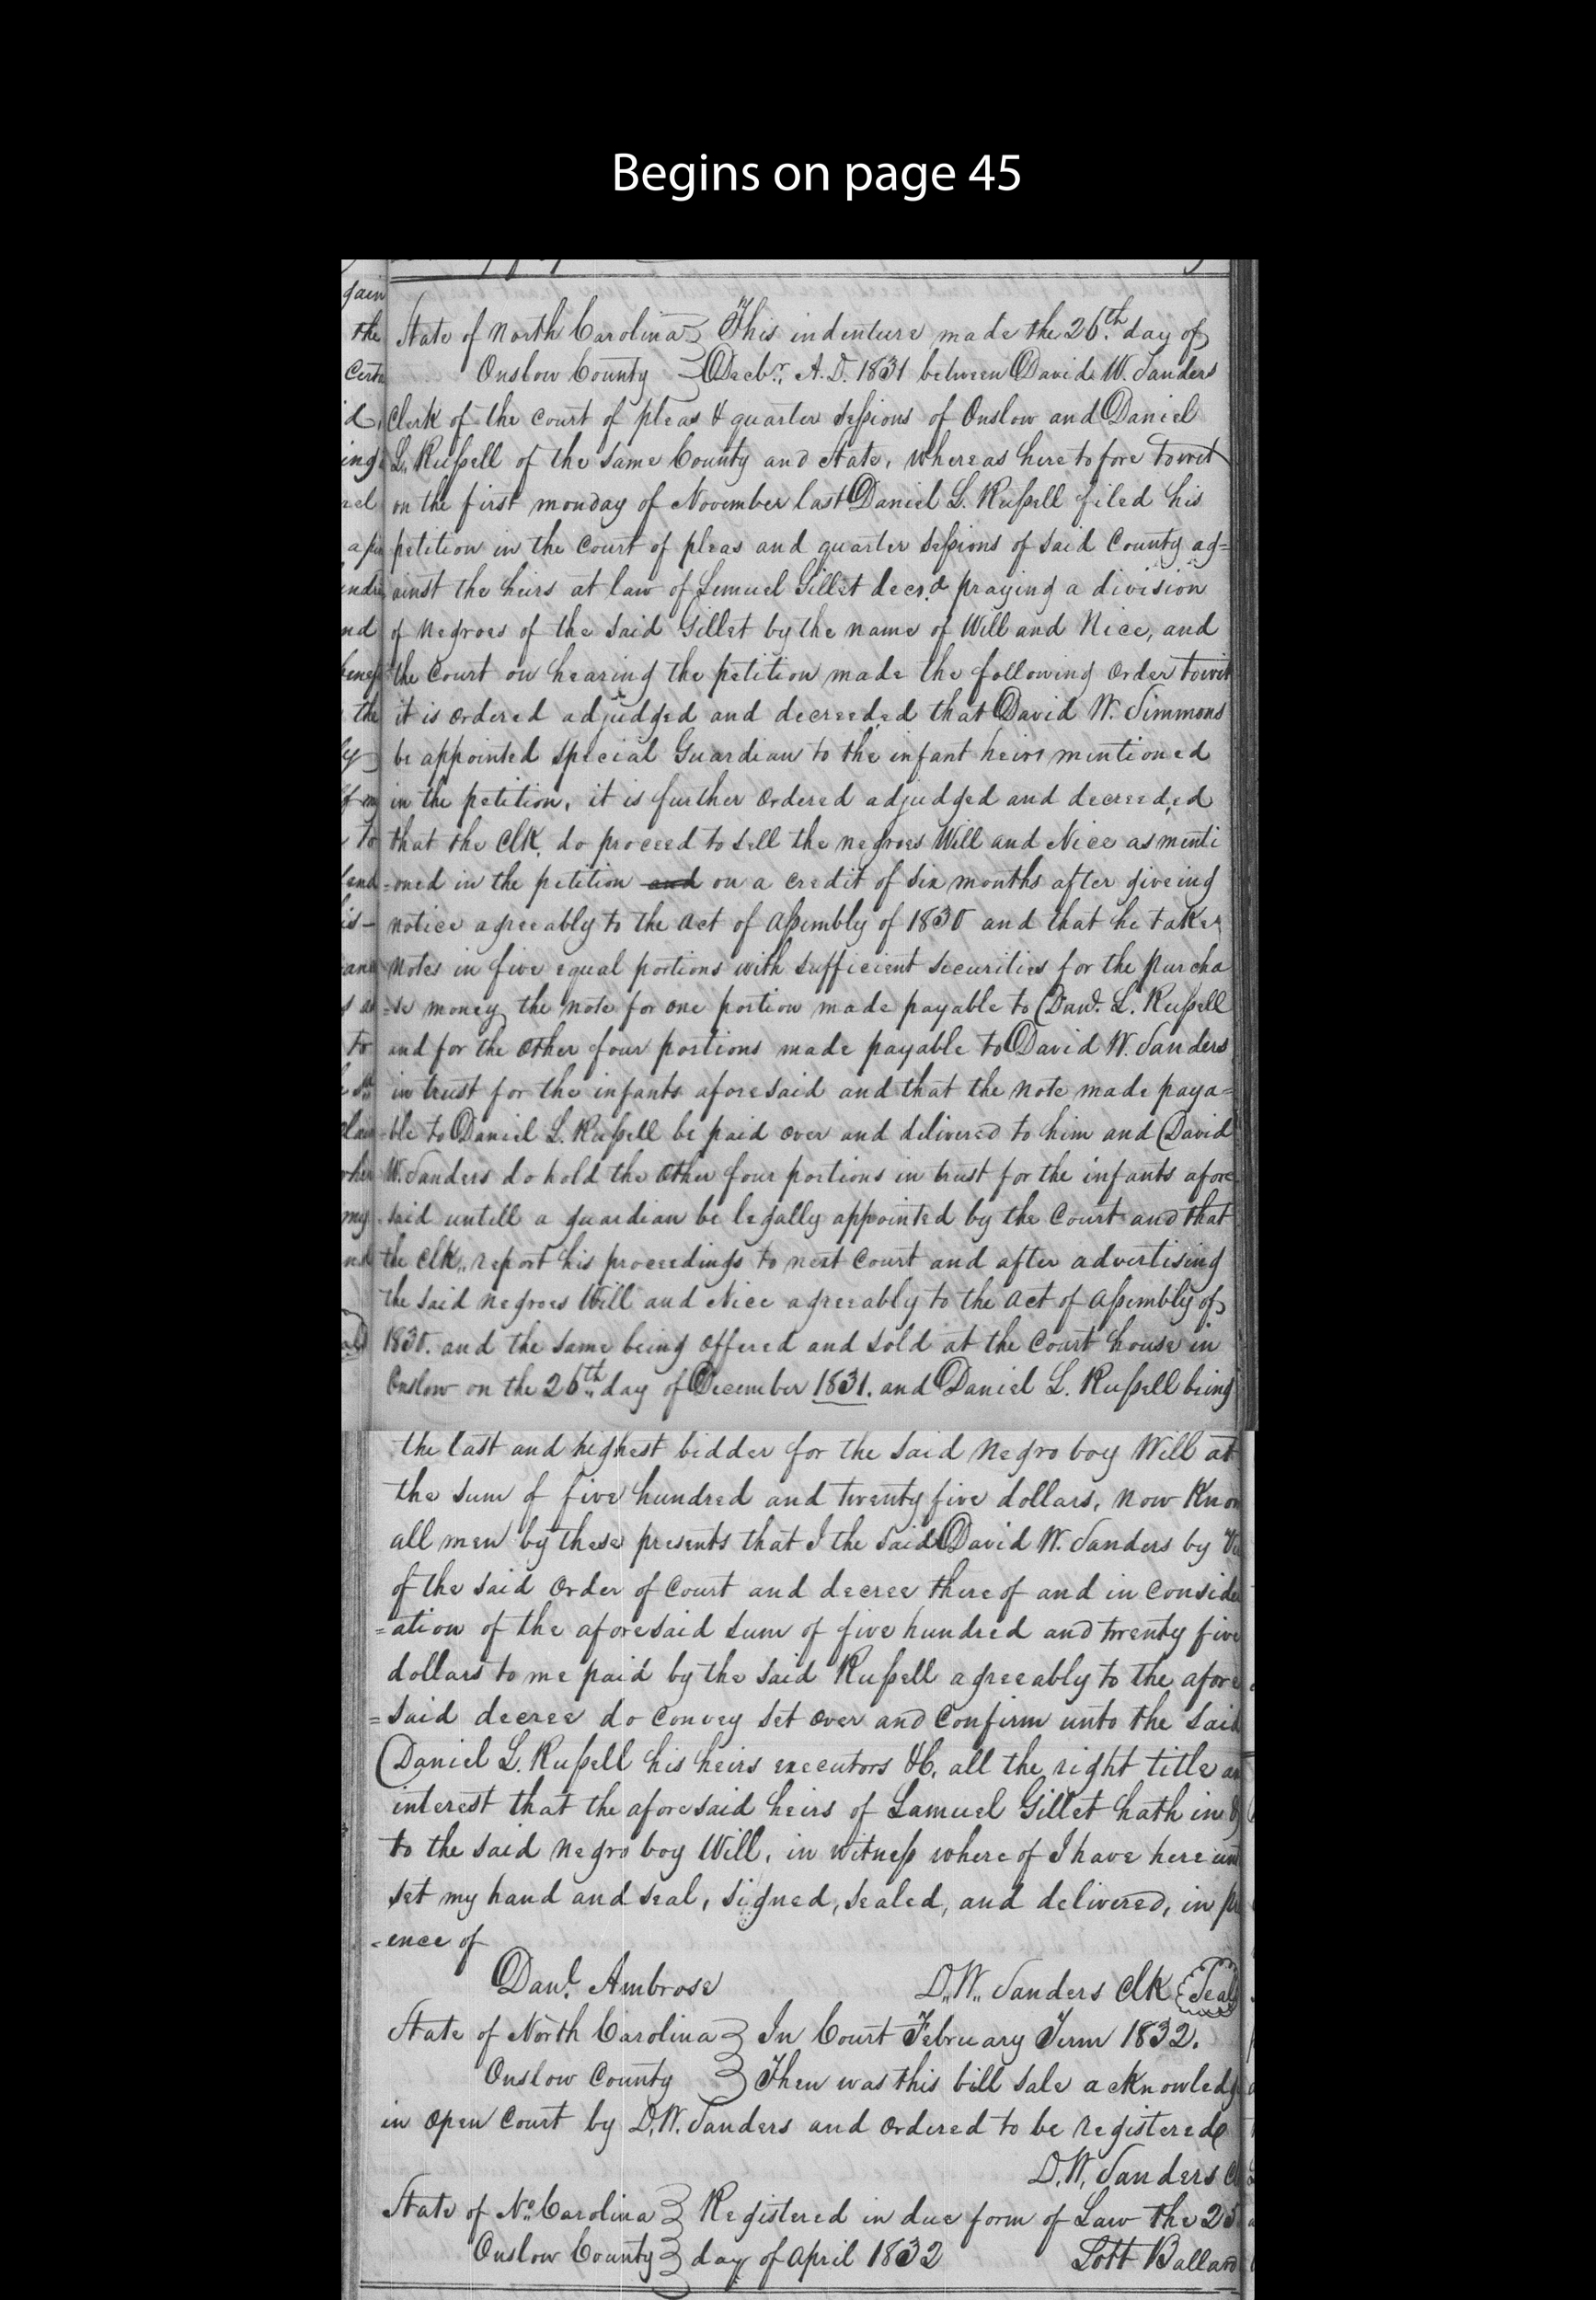 Begins on page 45
State of North Carolina This indenture made the 26th day of
Onslow County Decbr., A.D. 1831 between David W. Sanders
Clerk of the court of pleas & quarter sessions of Onslow and Daniel
L. Russell of the same County and State, whereas here to fore towit
on the first monday of November last Daniel L. Russell filed his
petition in the court of pleas and quarter sessions of said County ag=
ainst the heirs at law of Lemuel Gillet decs.d praying a division
of negroes of the said Gillet by the name of Will and Nice, and
the Court on hearing the petition made the following order towit
it is ordered adjudged and decreeded that David W. Simmons
be appointed special Guardian to the infant heirs mentioned
in the petition, it is further ordered adjudged and decreeded
that the Clk. do proceed to sell the negroes Will and Nice as menti
=oned in the petition and on a credit of six months after giveing
notice agreeably to the act of Assembly of 1830 and that he takes
notes in five equal portions with sufficient securities for the purcha
=se money, the note for one portion made payable to L. Russell
and for the other four portions made payable to David W. Sanders
in trust for the infants aforesaid and that the note made paya=
ble to Daniel L. Russell be paid over and delivered to him and David
W. Sanders do hold the other four portions in trust for the infants afore
said untill a guardian be legally appointed by the Court and that
the Clk,, report his proceedings to next Court and after advertising
the said negroes Will and Nice agreeably to the act of Assembly of
1830. and the same being offered and sold at the Court house in
Onslow on the 26th,, day of December 1831. and Daniel L. Russell being
the last and highest bidder for the said negro boy Will at
the sum of five hundred and twenty five dollars, now Know
all men by these presents that I the said David W. Sanders by
of the said order of Court and decree there of and in consider
=ation of the aforesaid sum of five hundred and twenty five
dollars to me paid by the said Russell agreeably to the afore
=said decree do convey set over and confirm unto the said
Daniel L. Russell his heirs executors &C, all the right title an
interest that the aforesaid heirs of Lamuel Gillet hath in &
to the said negro boy Will, in witness where of I have here un
set my hand and seal, signed, sealed, and delivered, in
=ence of
Danl. Ambrose D,,W,, Sanders Clk Seal
State of North Carolina In Court February Term 1832.
Onslow County Then was this bill sale acknowledg
in open Court by D.W. Sanders and ordered to be registered
D.W. Sanders
State of No. Carolina Registered in due form of Law the 25
Onslow County day of April 1832 Lott Ballard